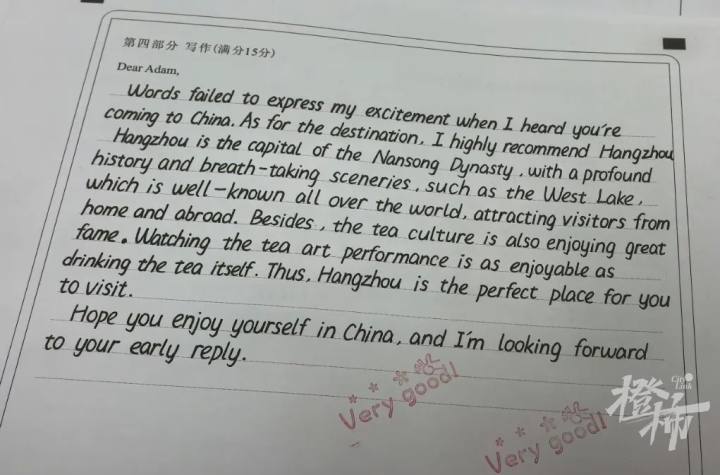 第四部分 写作(满分15分)
Dear Adam,
Words failed to express my excitement when I heard you're
coming to China. As for the destination, I highly recommend Hangzhou
Hangzhou is the capital of the Nansong Dynasty, with a profound
history and breath-taking sceneries, such as the West Lake,
which is well-known all over the world, attracting visitors from
home and abroad. Besides, the tea culture is also enjoying great
fame. Watching the tea art performance is as enjoyable as
drinking the tea itself. Thus, Hangzhou is the perfect place for you
to visit.
Hope you enjoy yourself in China, and I'm looking forward
to your early reply.
Very good!
Very good!
City Link
橙柿